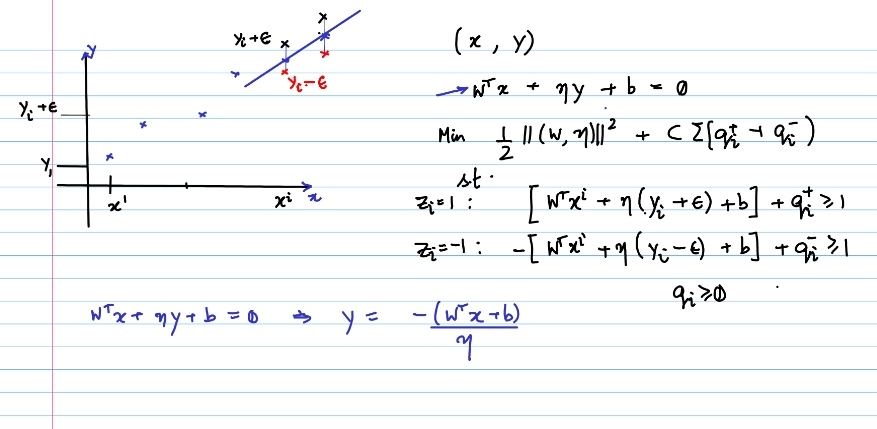 y
y_i + ϵ
y_1
x^1
x^i
x
y_i + ϵ
y_i - ϵ
(x, y)
→ w^T x + ηy + b = 0
Min 1/2 ||(w, η)||^2 + C Σ(q_i^+ + q_i^-)
st.
z_i = 1 : [w^T x^i + η(y_i + ϵ) + b] + q_i^+ ≥ 1
z_i = -1 : -[w^T x^i + η(y_i - ϵ) + b] + q_i^- ≥ 1
q_i ≥ 0
w^T x + ηy + b = 0 ⇒ y = -(w^T x + b)/η